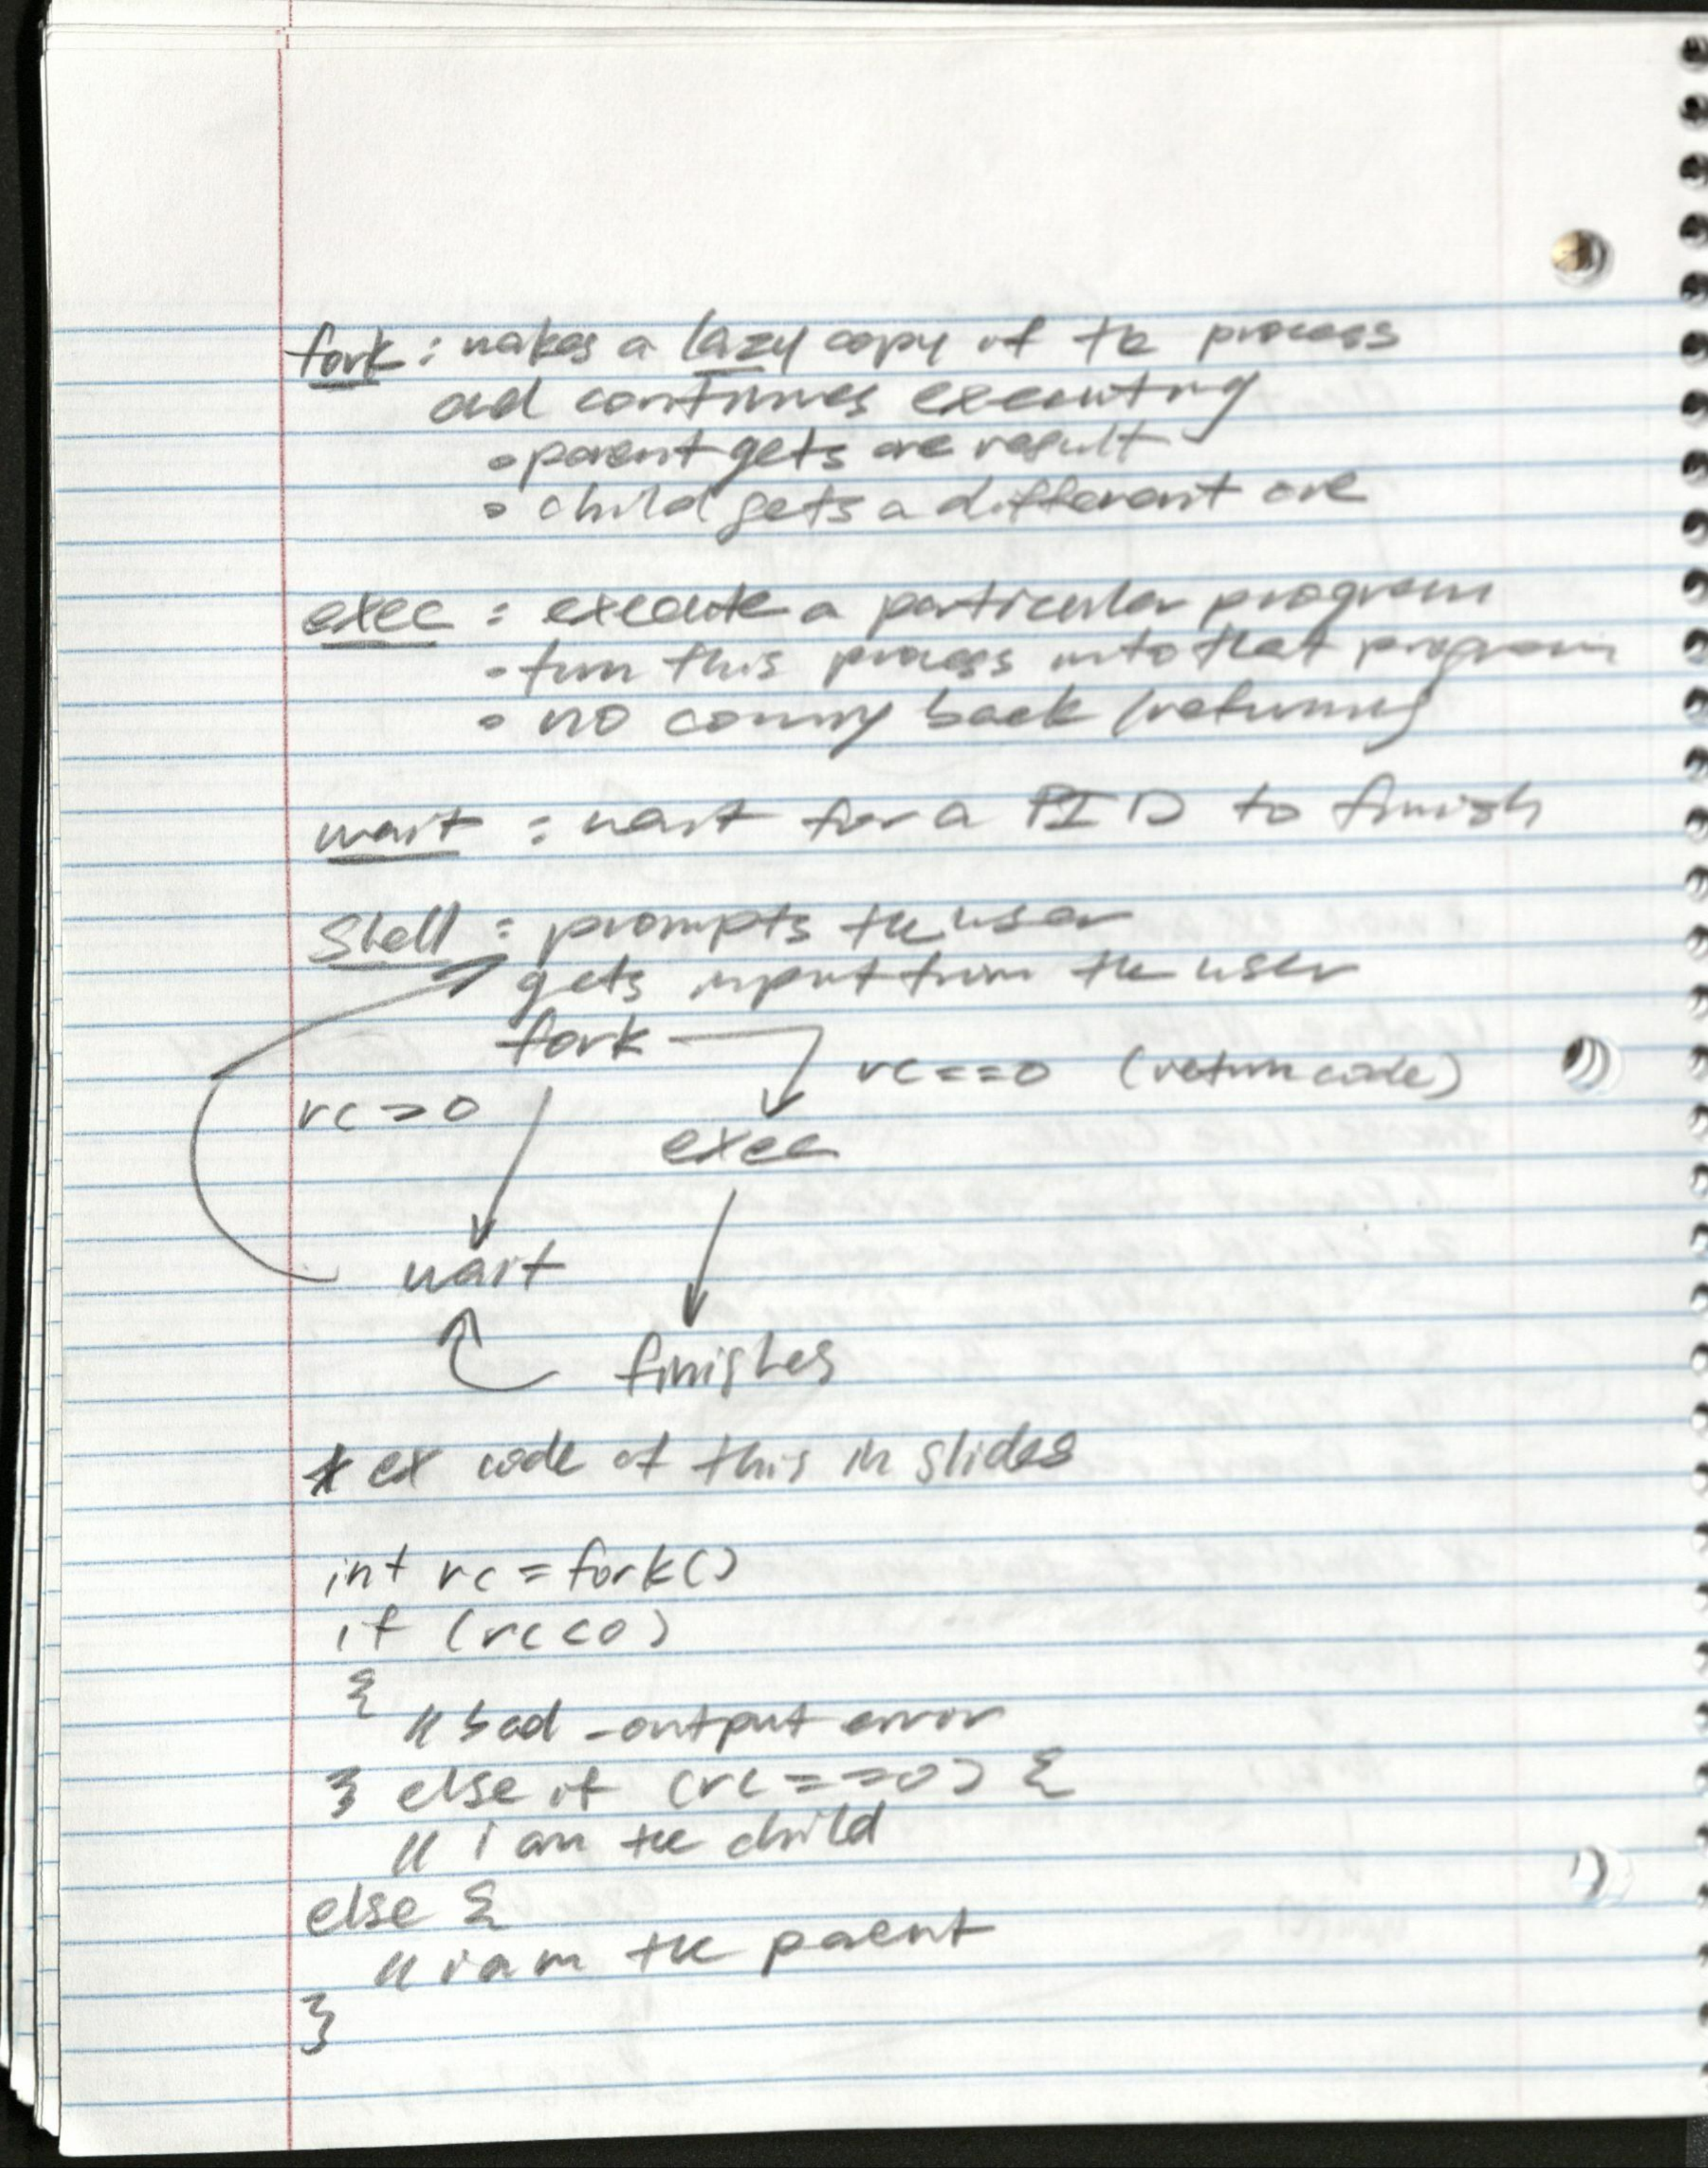 fork: makes a lazy copy of the process
and continues executing
• parent gets one result
• child gets a different one
exec: execute a particular program
• turn this process into that program
• no coming back (returning)
wait: wait for a PID to finish
Shell: prompts the user
gets input from the user
fork
rc==0 (return code)
rc>0
exec
wait
finishes
* ex code of this in slides
int rc = fork()
if (rc<0)
{
// bad - output error
} else if (rc==0) {
// i am the child
else {
// i am the parent
}